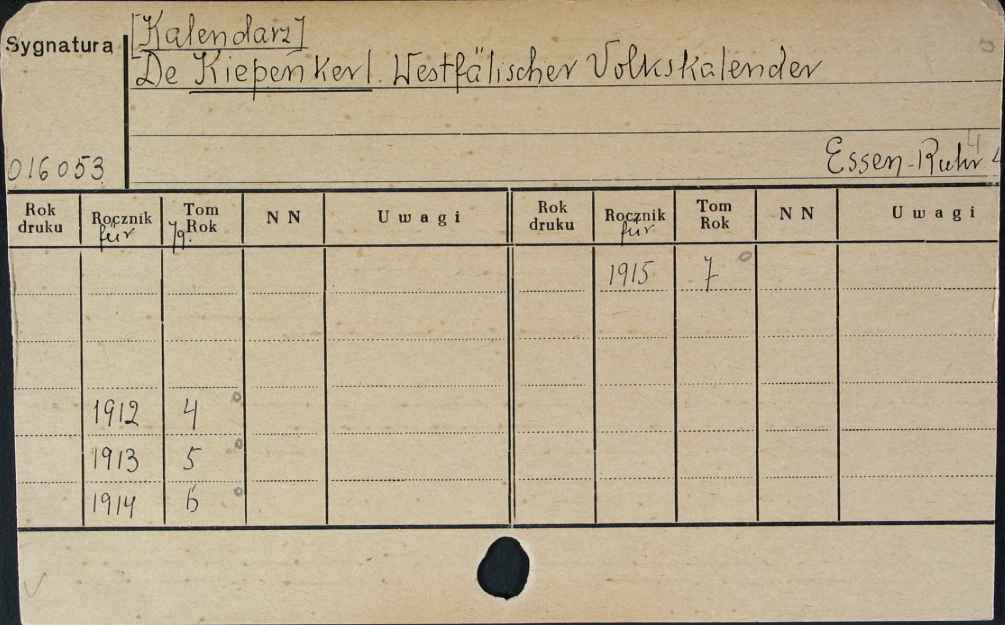 [Kalendarz]
Sygnatura
De Kiepenkerl. Westfälischer Volkskalender
4
Essen-Ruhr
016053
Rok druku Rocznik für Tom Rok Jg. NN Uwagi Rok druku Rocznik für Tom Rok NN Uwagi
1915 7
1912 4
1913 5
1914 6